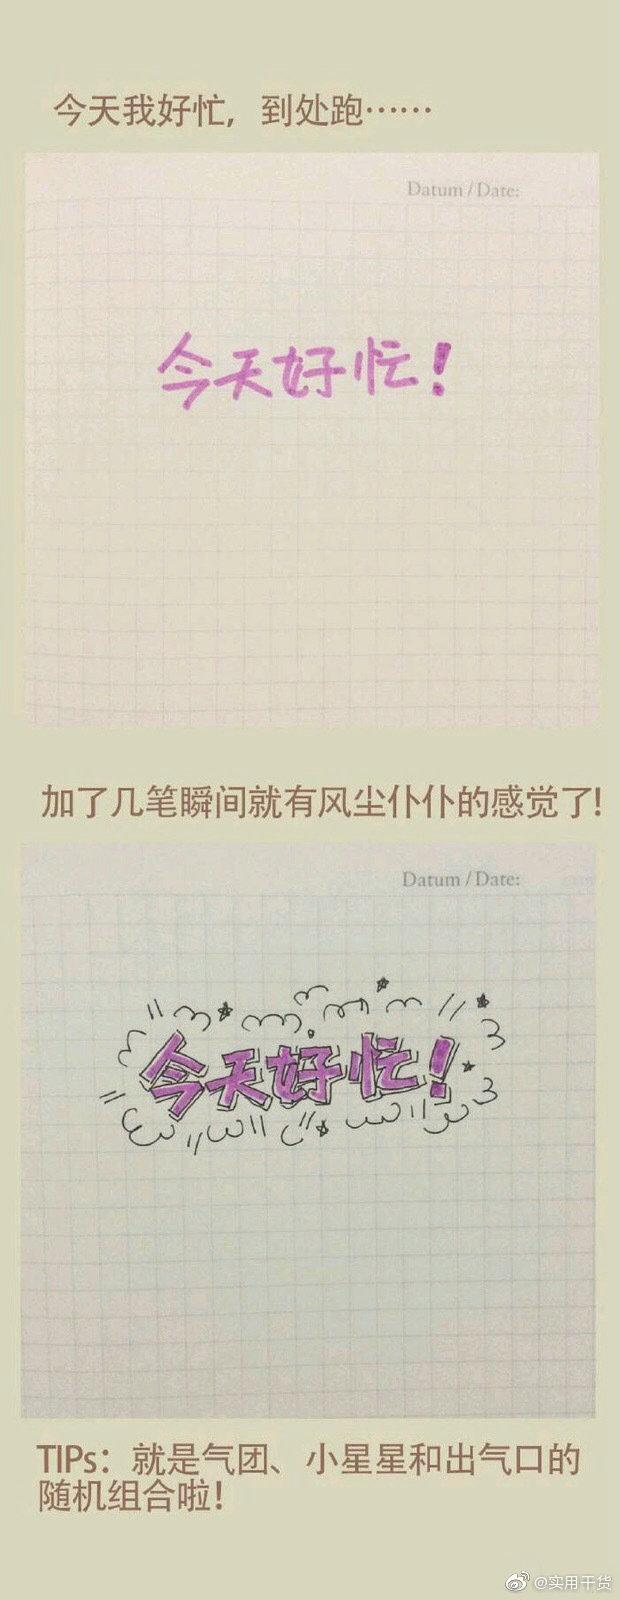 今天我好忙，到处跑……
Datum / Date:
今天好忙！
加了几笔瞬间就有风尘仆仆的感觉了!
Datum / Date:
今天好忙！
TIPs：就是气团、小星星和出气口的
随机组合啦！
@实用干货